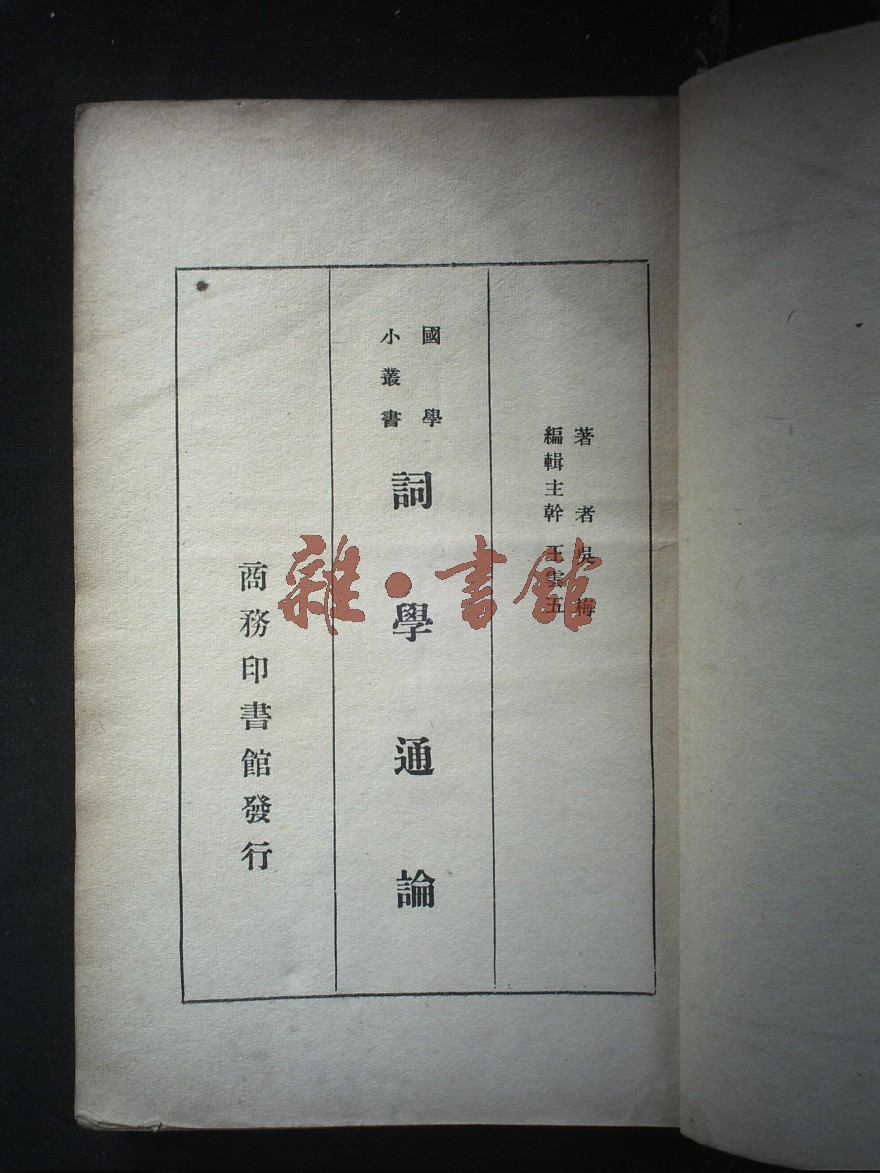 著者吳梅
編輯主幹王雲五
國學
小叢書
詞學通論
商務印書館發行
雜·書館